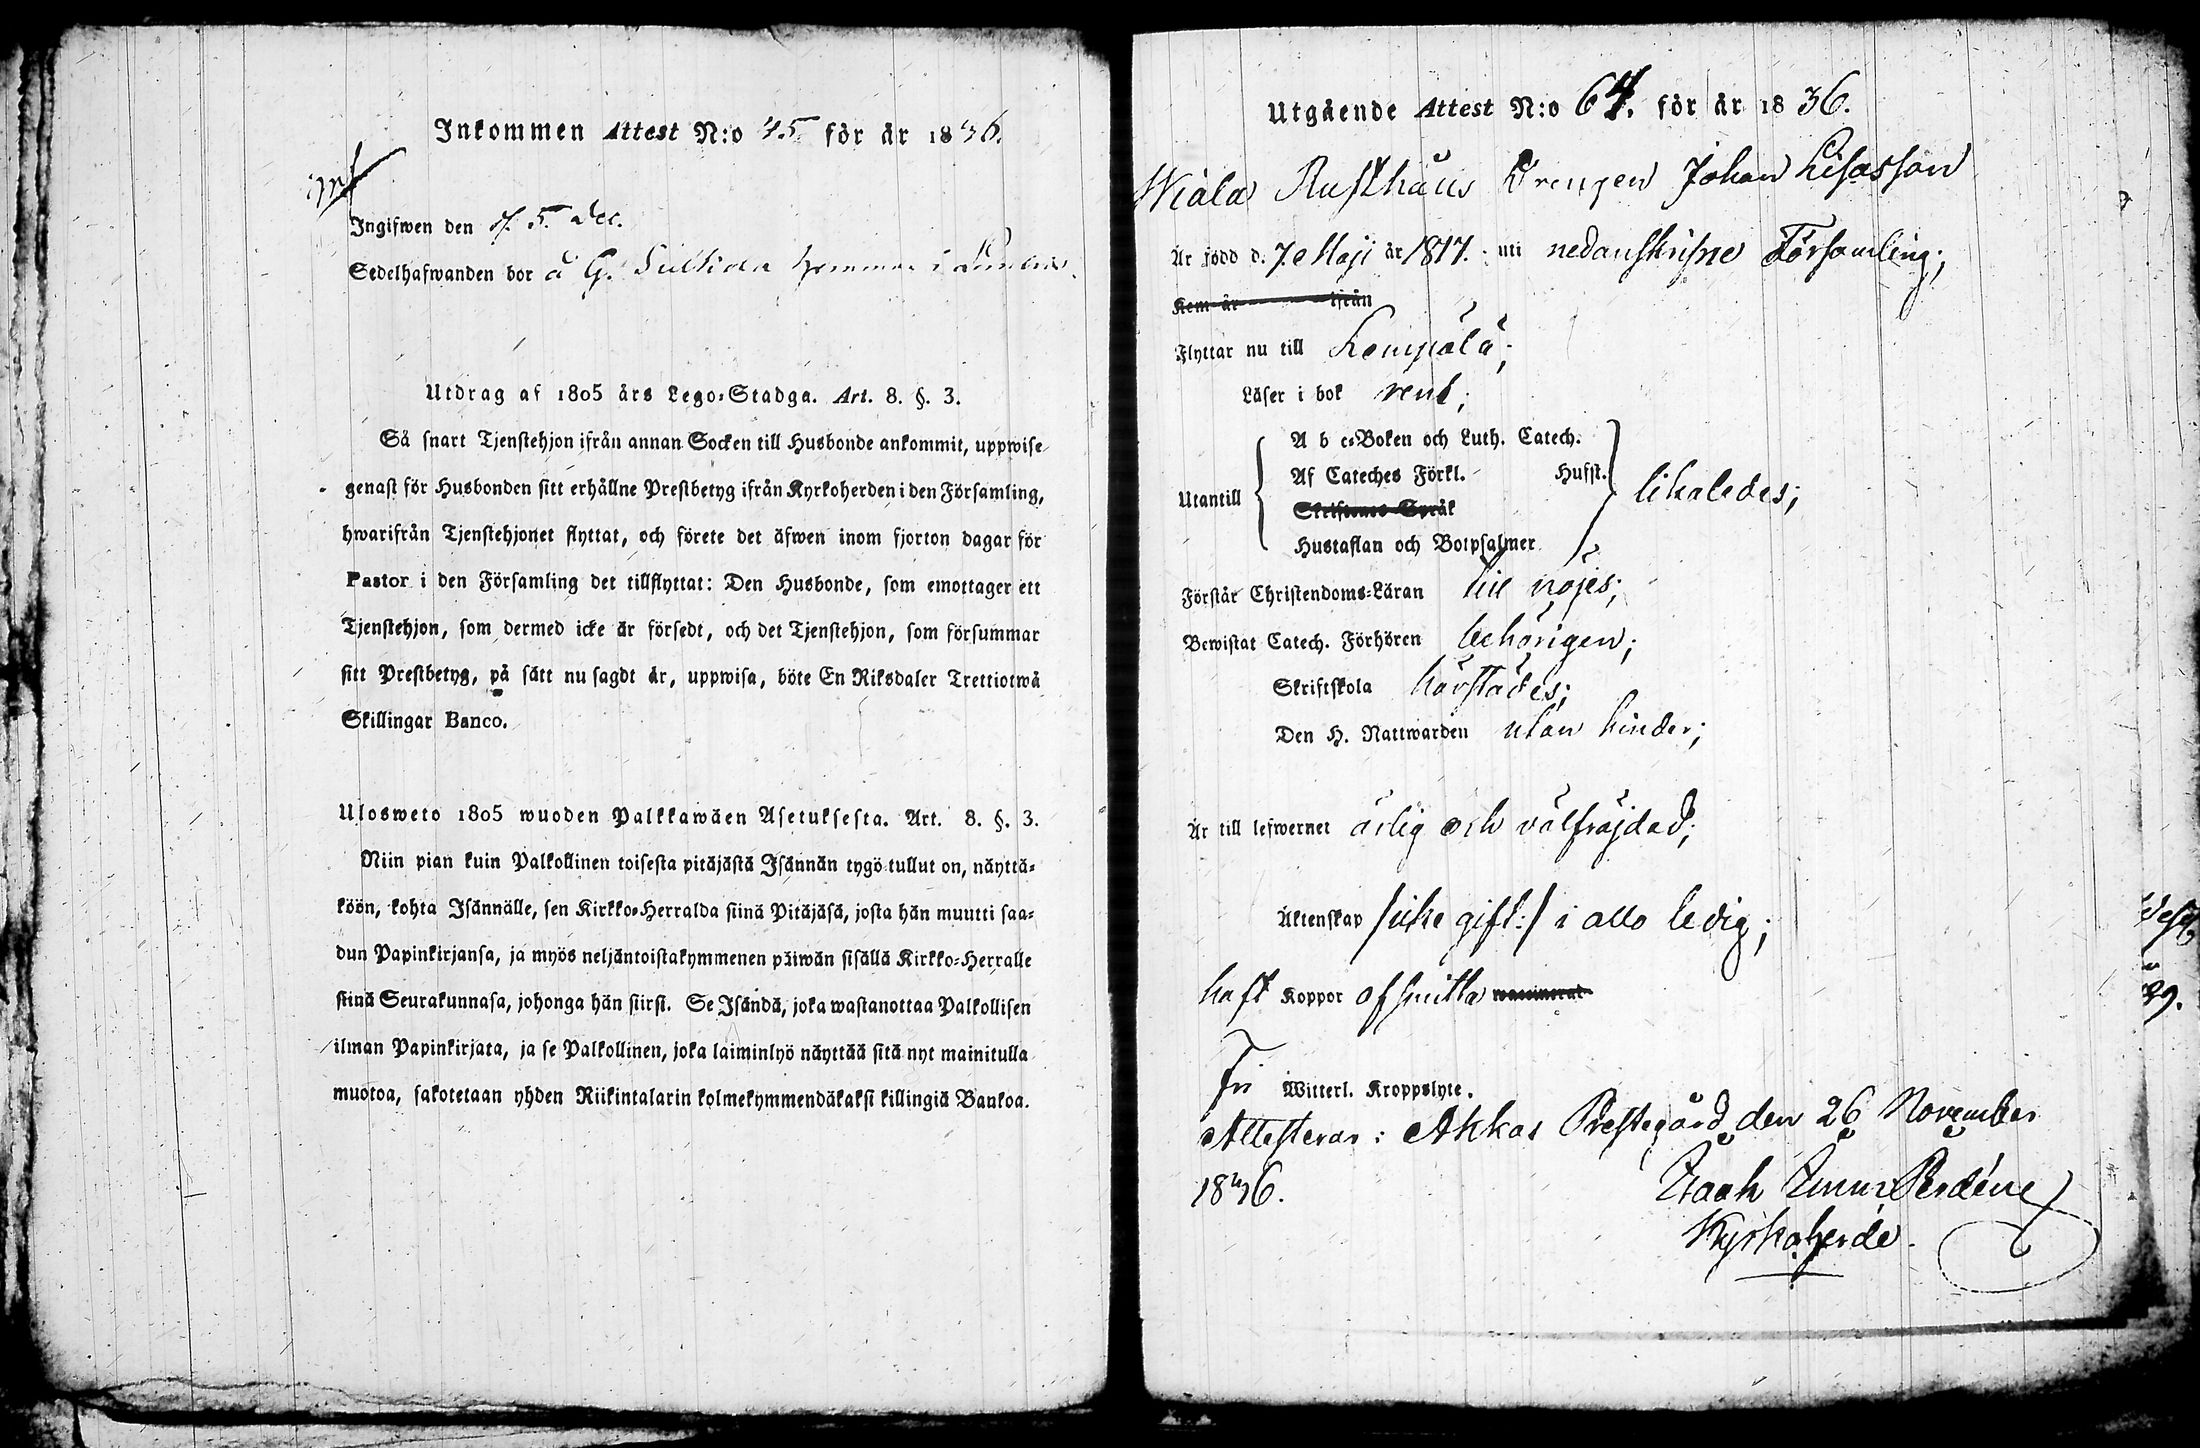 Inkommen Attest N:o 45 för år 1836.
Ingifwen den d. 5. Dec.
Sedelhafwanden bor å G. hemman i
Utdrag af 1805 års Lego-Stadga. Art. 8. §. 3.
Så snart Tjenstehjon ifrån annan Socken till Husbonde ankommit, uppwise
genast för Husbonden sitt erhållne Prestbetyg ifrån Kyrkoherden i den Församling,
hwarifrån Tjenstehjonet flyttat, och förete det äfwen inom fjorton dagar för
Pastor i den Församling det tillflyttat: Den Husbonde, som emottager ett
Tjenstehjon, som dermed icke är försedt, och det Tjenstehjon, som försummar
sitt Prestbetyg, på sätt nu sagdt är, uppwisa, böte En Riksdaler Trettiotwå
Skillingar Banco.
Ulosweto 1805 wuoden Palkkawäen Asetuksesta. Art. 8. §. 3.
Niin pian kuin Palkollinen toisesta pitäjästä Isännän tygö tullut on, näyttä-
köön, kohta Isännälle, sen Kirkko-Herralda siinä Pitäjäsä, josta hän muutti saa-
dun Papinkirjansa, ja myös neljäntoistakymmenen päiwän sisällä Kirkko-Herralle
siinä Seurakunnasa, johonga hän siirsi. Se Isändä, joka wastanottaa Palkollisen
ilman Papinkirjata, ja se Palkollinen, joka laiminlyö näyttää sitä nyt mainitulla
muotoa, sakotetaan yhden Riikintalarin kolmekymmendäkaksi killingiä Bankoa.
Utgående Attest N:o 64. för år 1836.
Wiala Rusthålls Drengen Johan Lisasson
Är född d. 7. Maji år 1817. uti nedanskrifne Församling;
Kom år ifrån
Flyttar nu till Lempälä;
Läser i bok rent;
Utantill
A b c-Boken och Luth. Catech.
Af Cateches Förkl. Husst.
Skriftenes Språk
Hustaflan och Botpsalmer
likaledes;
Förstår Christendoms-Läran till nöjes;
Bewistat Catech. Förhören behörigen;
Skriftskola härstädes;
Den H. Nattwarden utan hinder;
Är till lefwernet ärlig och välfräjdad;
Äktenskap /icke gift:/ i allo ledig;
haft Koppor af smitta waccinerat
Fri Witterl. Kroppslyte.
Attesterar: Akkas Prestegård den 26 November
1836.
Kyrkoherde.